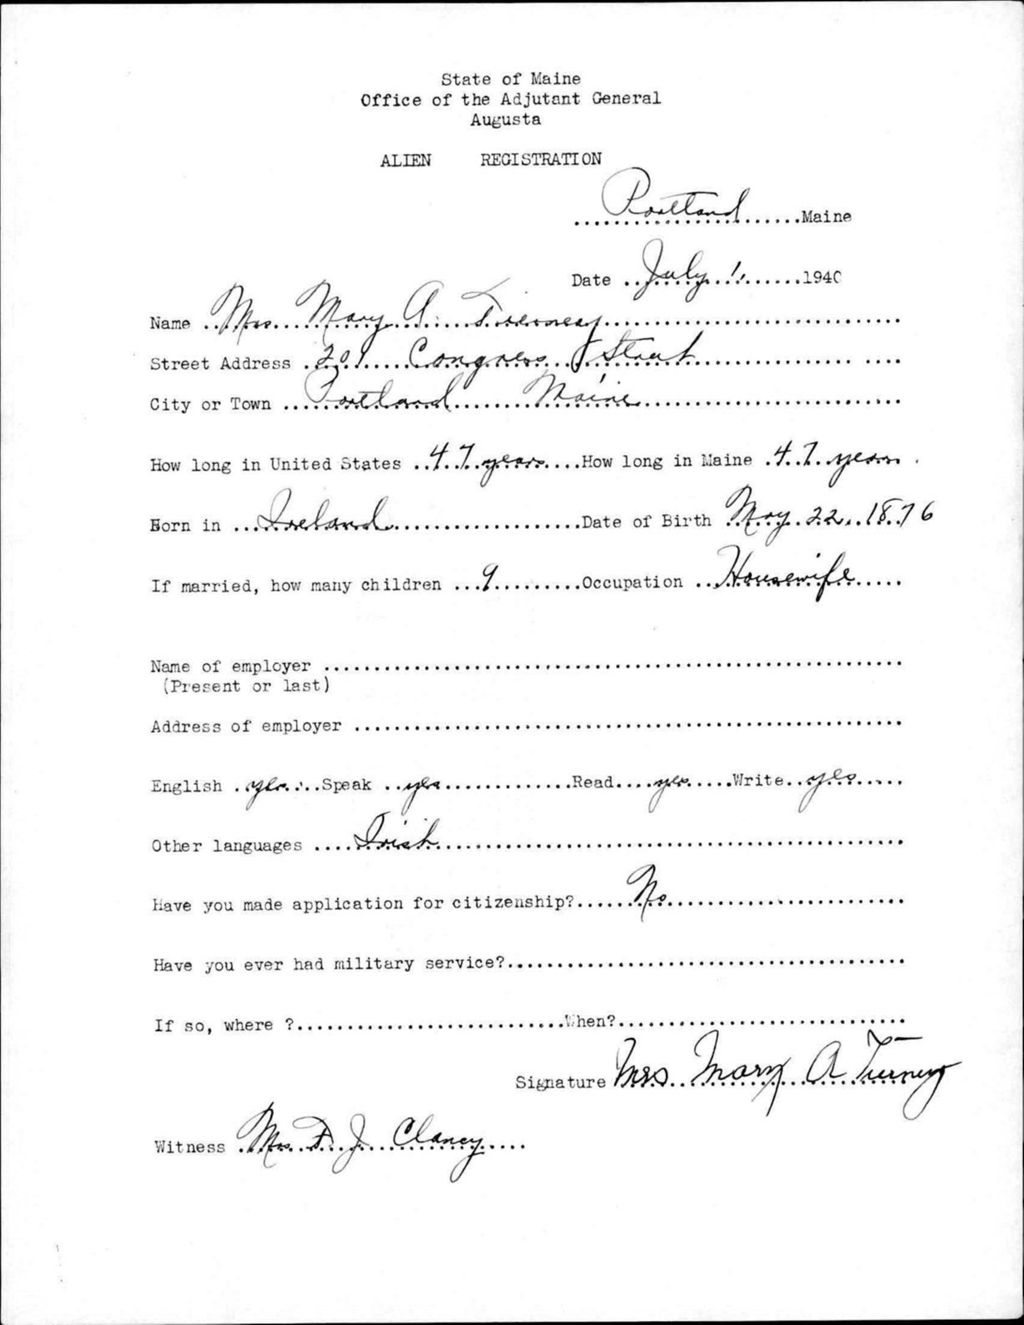 State of Maine
Office of the Adjutant General
Augusta
ALIEN REGISTRATION
Portland Maine
Date July 1, 1940
Name Mrs Mary A. Tierney
Street Address 201 Congress Street
City or Town Portland Maine
How long in United States 47 years How long in Maine 47 years
Born in Ireland Date of Birth May 22, 1876
If married, how many children 9 Occupation Housewife
Name of employer
(Present or last)
Address of employer
English yes Speak yes Read yes Write yes
Other languages Irish
Have you made application for citizenship? No
Have you ever had military service?
If so, where ? When?
Signature Mrs. Mary A Tierney
Witness Mrs F. J. Clancy